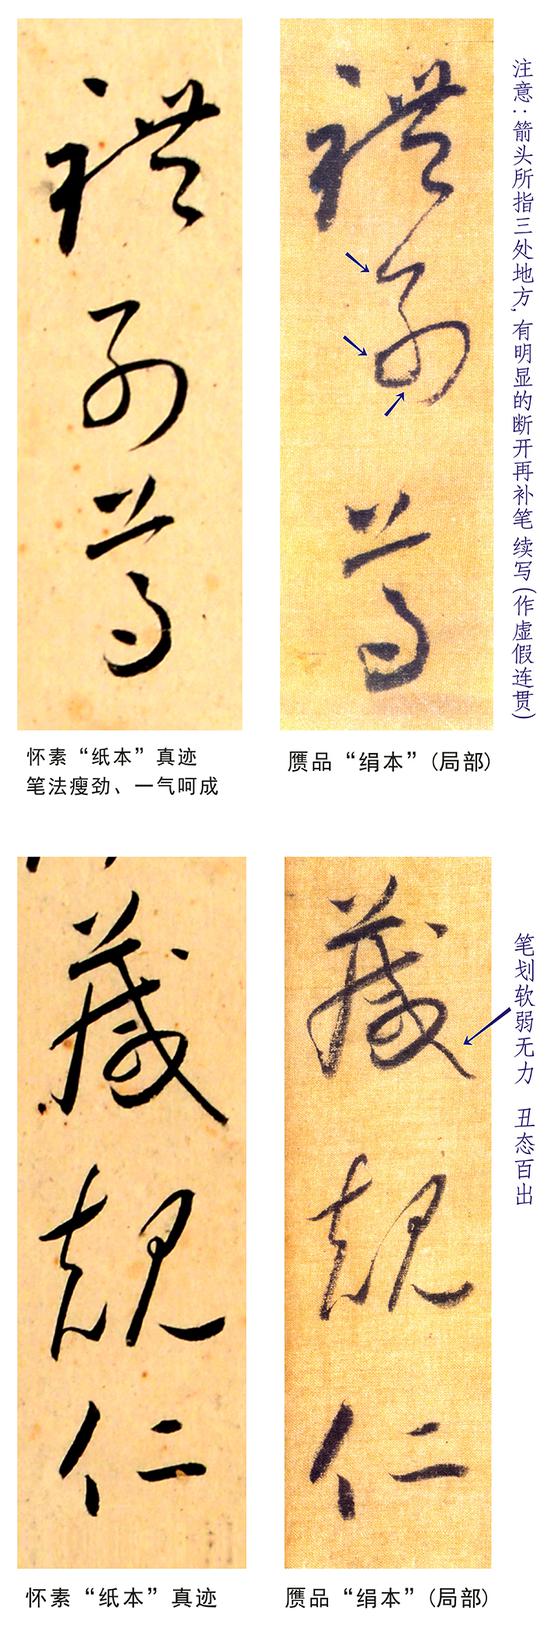 禮別尊
禮別尊
注意：箭头所指三处地方，有明显的断开再补笔 续写(作虚假连贯)
怀素“纸本”真迹
笔法瘦劲、一气呵成
赝品“绢本”(局部)
箴規仁
箴規仁
笔划软弱无力 丑态百出
怀素“纸本”真迹
赝品“绢本”(局部)